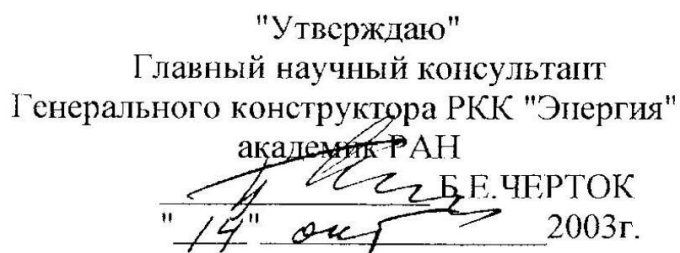 "Утверждаю"
Главный научный консультант
Генерального конструктора РКК "Энергия"
академик РАН
Б.Е.ЧЕРТОК
"14" окт 2003г.